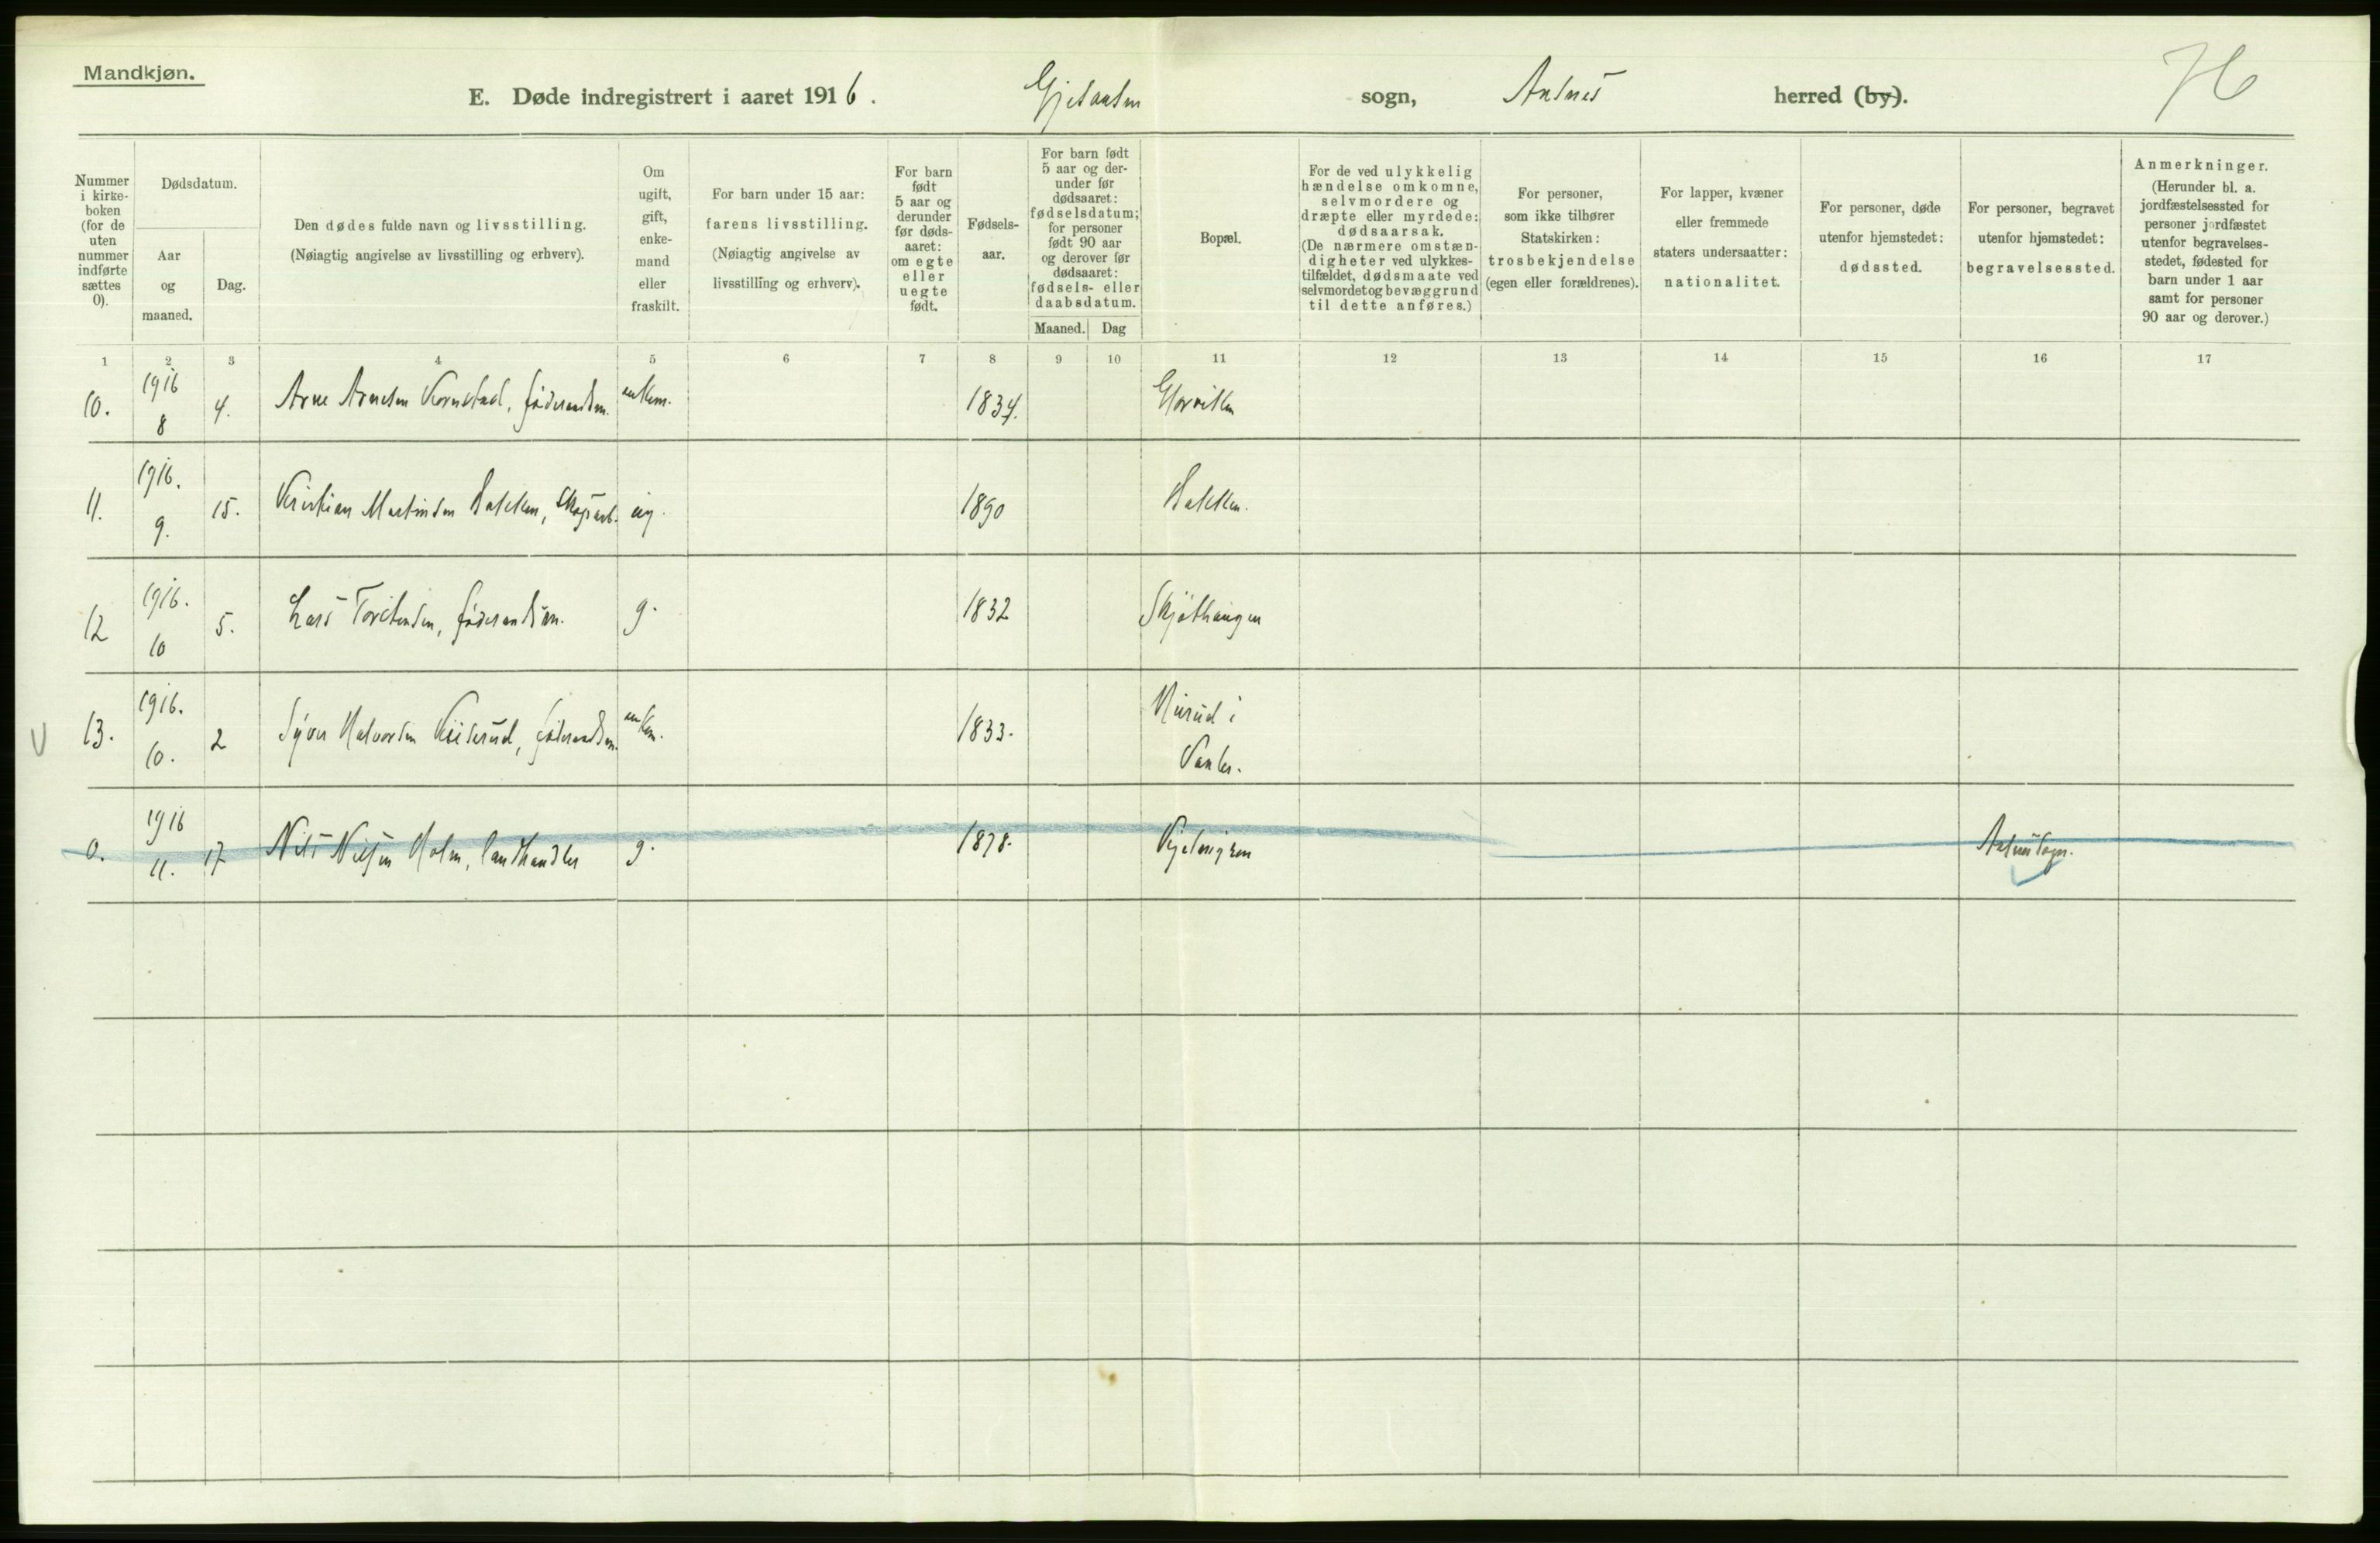 Mandkjøn.
E. Døde indregistrert i aaret 1916. Gjesaasen sogn, Aasnes herred (by).
Nummer i kirke-boken (for de uten nummer indførte sættes 0).
Dødsdatum.
Aar og maaned.
Dag.
Den dødes fulde navn og livsstilling.
(Nøiagtig angivelse av livsstilling og erhverv).
Om ugift, gift, enke-mand eller fraskilt.
For barn under 15 aar: farens livsstilling.
(Nøiagtig angivelse av livsstilling og erhverv).
For barn født 5 aar og derunder før døds-aaret: om egte eller uegte født.
Fødsels-aar.
For barn født 5 aar og der-under før dødsaaret: fødselsdatum; for personer født 90 aar og derover før dødsaaret: fødsels- eller daabsdatum.
Maaned. Dag
Bopæl.
For de ved ulykkelig hændelse omkomne, selvmordere og dræpte eller myrdede: dødsaarsak.
(De nærmere omstæn-digheter ved ulykkes-tilfældet, dødsmaate ved selvmordet og bevæggrund til dette anføres.)
For personer, som ikke tilhører Statskirken: trosbekjendelse (egen eller forældrenes).
For lapper, kvæner eller fremmede staters undersaatter: nationalitet.
For personer, døde utenfor hjemstedet: dødssted.
For personer, begravet utenfor hjemstedet: begravelsessted.
Anmerkninger.
(Herunder bl. a. jordfæstelsessted for personer jordfæstet utenfor begravelses-stedet, fødested for barn under 1 aar samt for personer 90 aar og derover.)
1 2 3 4 5 6 7 8 9 10 11 12 13 14 15 16 17
10. 1916 8 4. Arne Arnesen Kornstad, føderaadsm. enkem. 1834.
11. 1916. 9. 15. Kristian Martinsen Bakken, Skogsarb. ug. 1890 Bakken.
12 1916. 10 5. Lars Torstensen, føderaadsm. g. 1832 Skjøthaugen
13. 1916. 10. 2 Syver Halvorsen, føderaadsm. enkem. 1833. i
0. 1916 11. 17 Nils Nilsen Holm, landhandler g. 1878. Aasnes sogn.